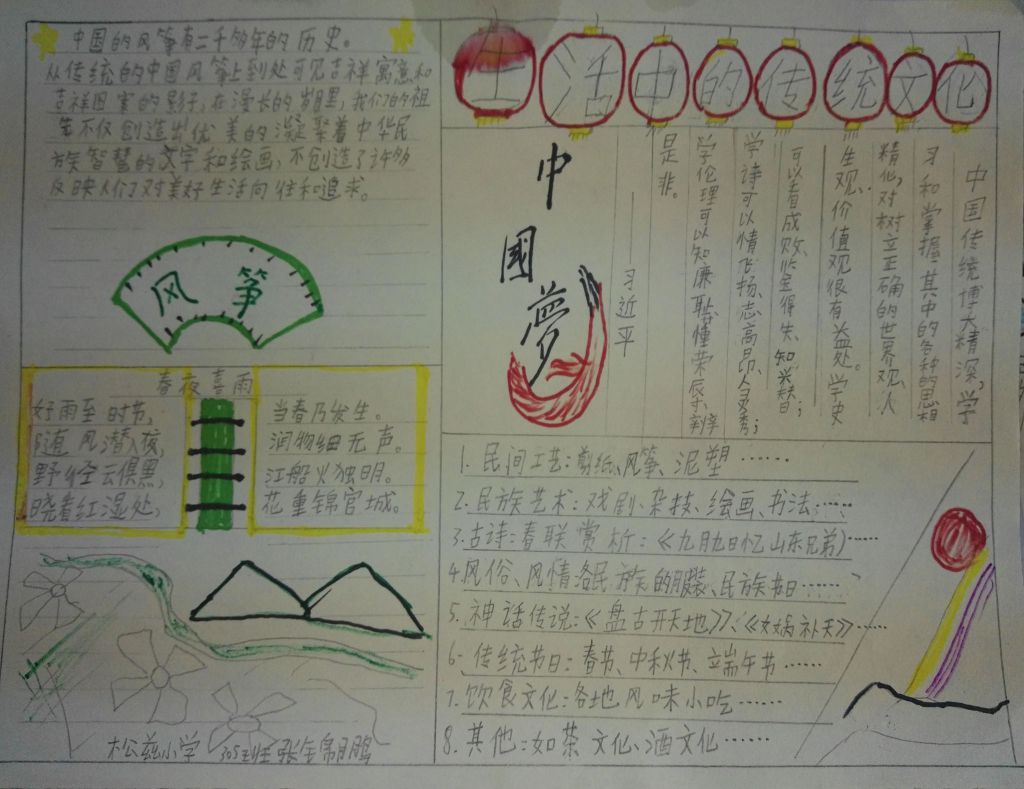 生活中的传统文化
中国的风筝有二千多年的历史。
从传统的中国风筝上到处可见吉祥寓意和
吉祥图案的影子,在漫长的岁月里,我们的祖
先不仅创造出优美的凝聚着中华民
族智慧的文字和绘画,不创造了许多
反映人们对美好生活向往和追求。
风筝
春夜喜雨
好雨至时节,
当春乃发生。
随风潜入夜,
润物细无声。
野径云俱黑,
江船火独明。
晓看红湿处,
花重锦官城。
松兹小学 305班
中國夢
中国传统博大精深,学
习和掌握其中的各种的思想
精化,对树立正确的世界观、人
生观、价值观很有益处。学史
可以看成败、监宝得失、知兴秩日;
学诗可以情飞扬、志高昂、人灵秀;
学伦理可以知廉耻、懂荣辰、辨
是非。
——习近平
1. 民间工艺:剪纸、风筝、泥塑……
2. 民族艺术:戏剧、杂技、绘画、书法……
3. 古诗:春联赏析:《九月九日忆山东兄弟》……
4. 风俗、风情:各民族的服装、民族节日……
5. 神话传说:《盘古开天地》、《女娲补天》……
6. 传统节日:春节、中秋节、端午节……
7. 饮食文化:各地风味小吃……
8. 其他:如茶文化、酒文化……